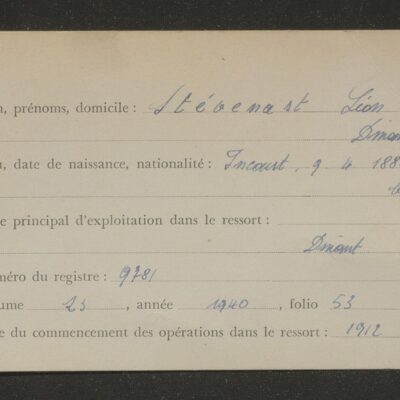 , prénoms, domicile : Stévenart Léon
Dinant
, date de naissance, nationalité : Incourt, 9 4 188
e principal d'exploitation dans le ressort :
Dinant
méro du registre : 9781
ume 25, année 1940, folio 53
e du commencement des opérations dans le ressort : 1912